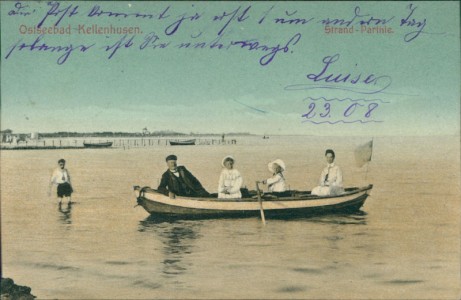 Die Post kommt ja erst 1 um andern Tag
solange ist sie unterwegs.
Ostseebad Kellenhusen.
Strand-Partie.
Luise
23.08